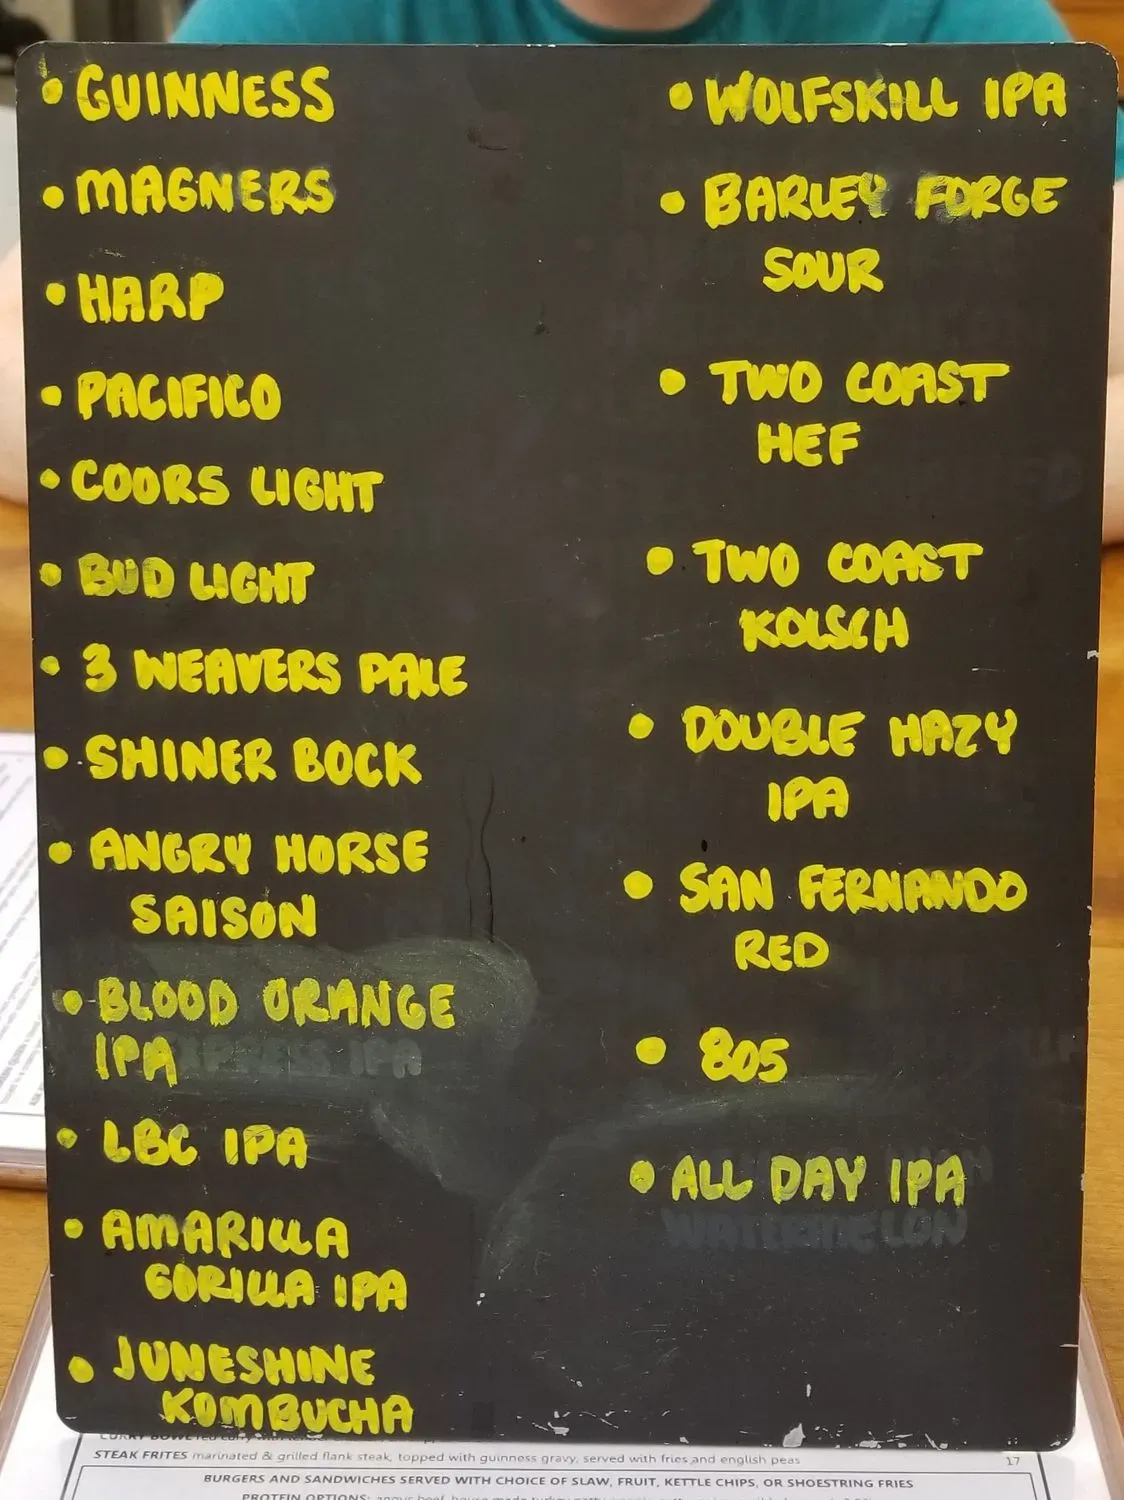 • GUINNESS
• MAGNERS
• HARP
• PACIFICO
• COORS LIGHT
• BUD LIGHT
• 3 WEAVERS PALE
• SHINER BOCK
• ANGRY HORSE
SAISON
• BLOOD ORANGE
IPA
EXPRESS IPA
• LBC IPA
• AMARILLA
GORILLA IPA
• JUNESHINE
KOMBUCHA
• WOLFSKILL IPA
• BARLEY FORGE
SOUR
• TWO COAST
HEF
• TWO COAST
KOLSCH
• DOUBLE HAZY
IPA
• SAN FERNANDO
RED
• 805
• ALL DAY IPA
WATERMELON
STEAK FRITES marinated & grilled flank steak, topped with guinness gravy, served with fries and english peas
17
BURGERS AND SANDWICHES SERVED WITH CHOICE OF SLAW, FRUIT, KETTLE CHIPS, OR SHOESTRING FRIES
PROTEIN OPTIONS: